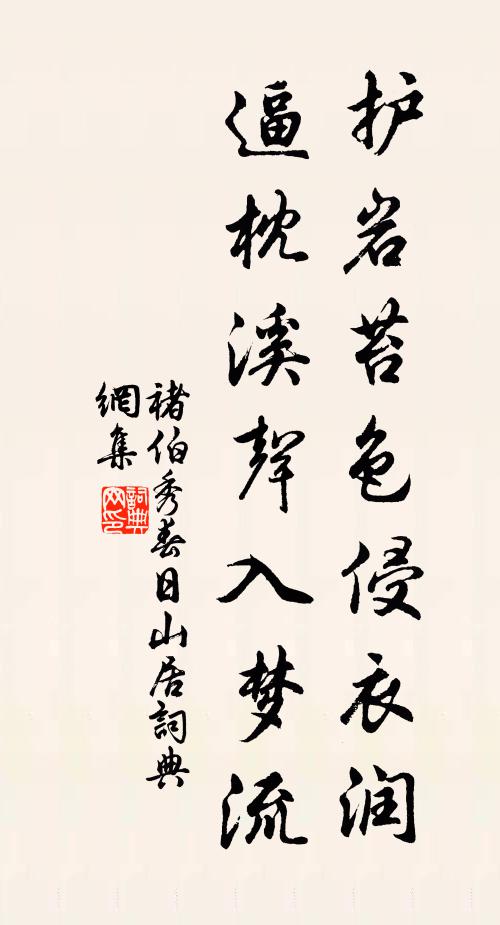 护岩苔色侵衣润
逼枕溪声入梦流
褚伯秀春日山居詞典
網集
詞典
网印